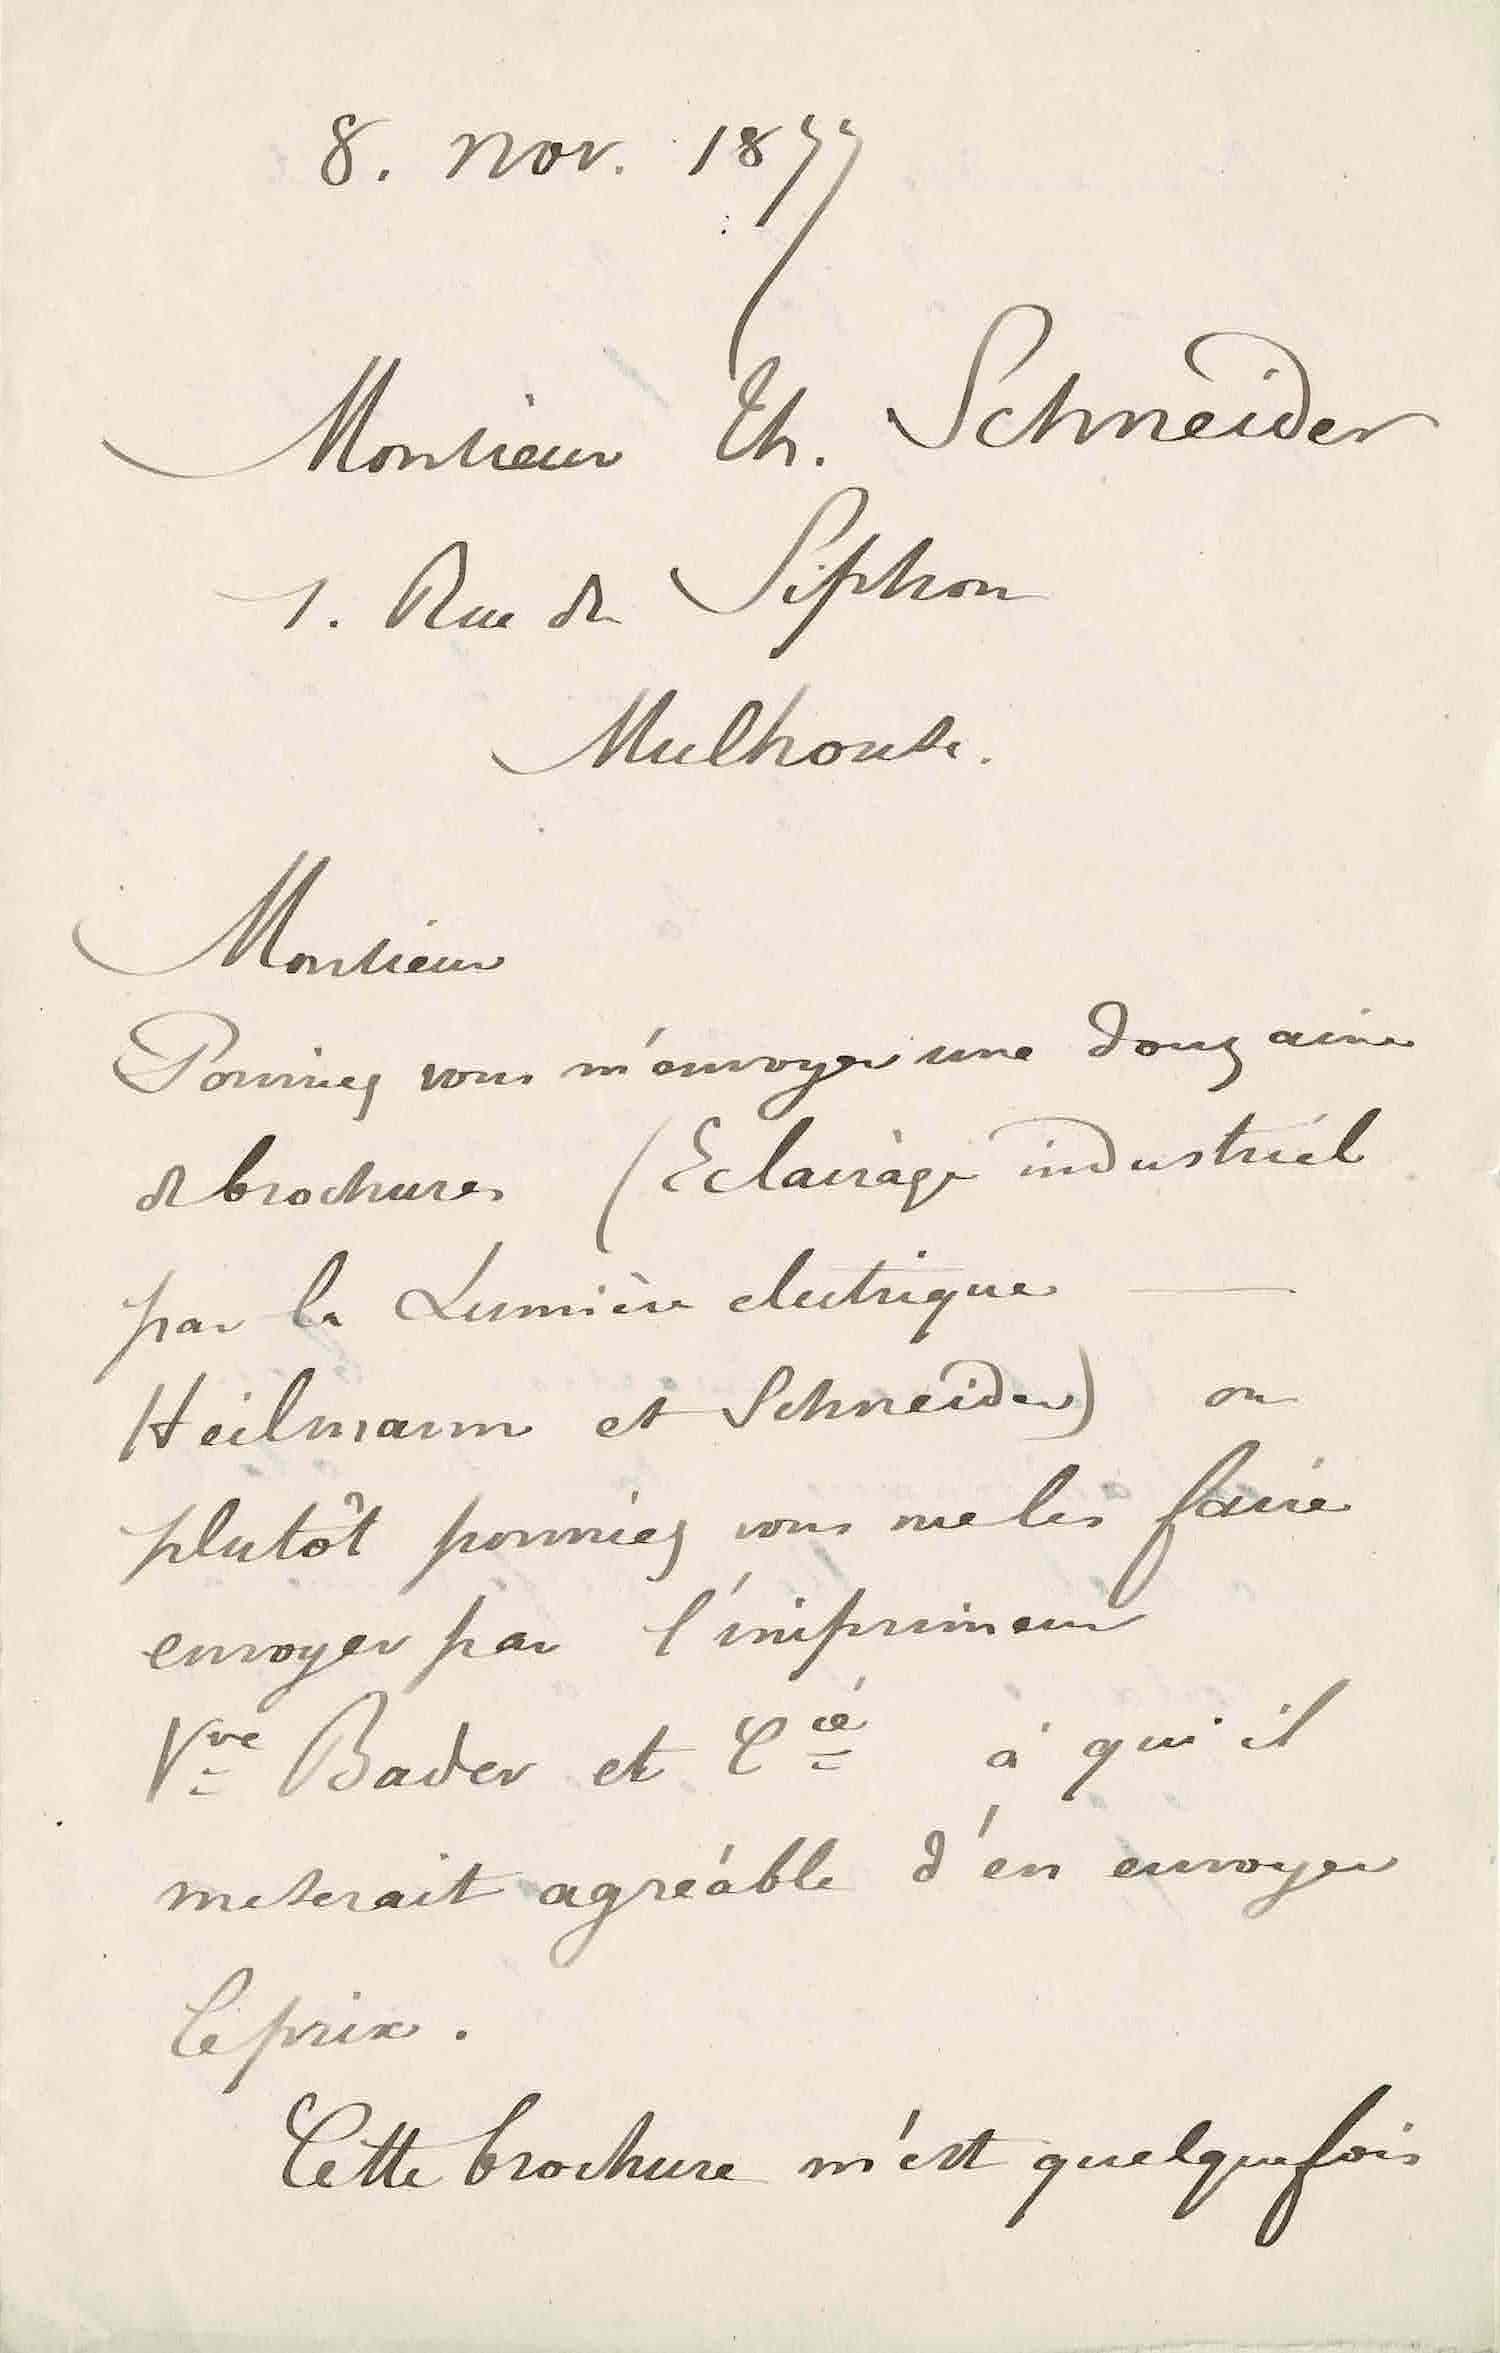 8. Nov. 1877
Monsieur Th. Schneider
1. Rue de Siphon
Mulhouse.
Monsieur
Pourriez vous m'envoyer une douzaine
de brochures (Eclairage industriel
par la Lumière electrique —
Heilmann et Schneider) ou
plutôt pourriez vous me les faire
envoyer par l'imprimeur
Vve Bader et Cie à qui il
me serait agréable d'en envoyer
le prix.
Cette brochure m'est quelquefois